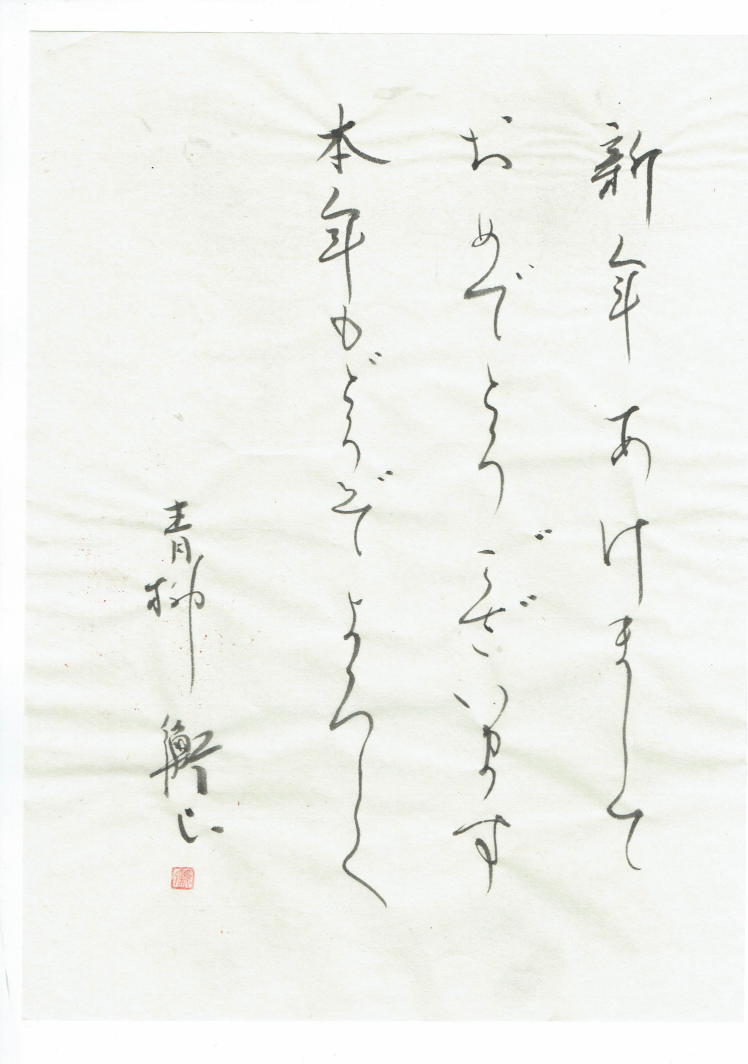 新年あけまして
おめでとうございます
本年もどうぞよろしく
青柳衡山